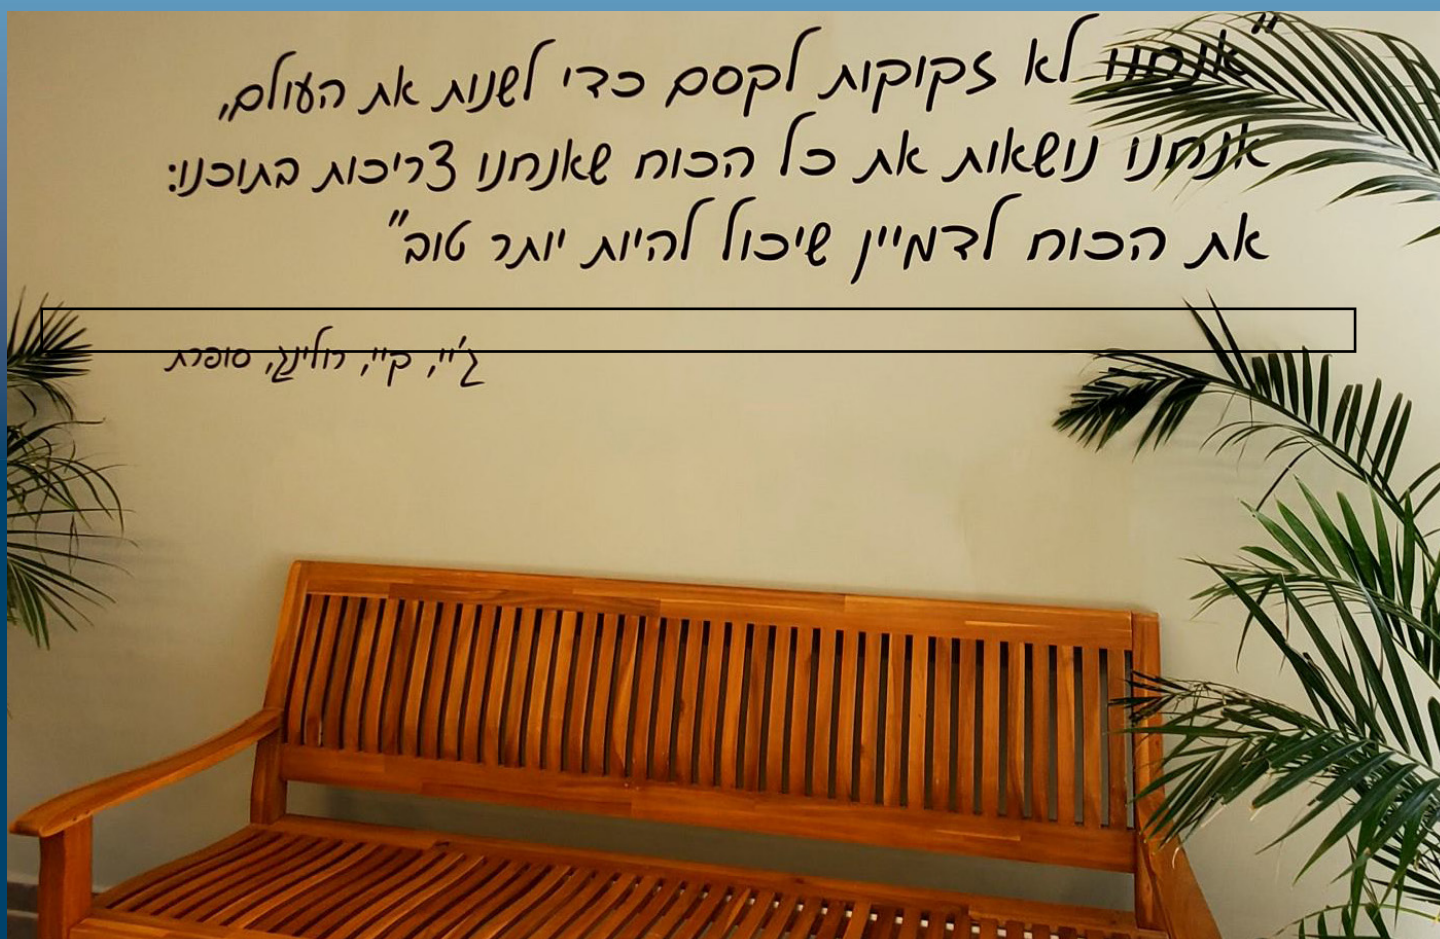 "אנחנו לא זקוקות לקסם כדי לשנות את העולם,
אנחנו נושאות את כל הכוח שאנחנו צריכות בתוכנו:
את הכוח לדמיין שיכול להיות יותר טוב"
ג'יי, קיי, רולינג, סופרת